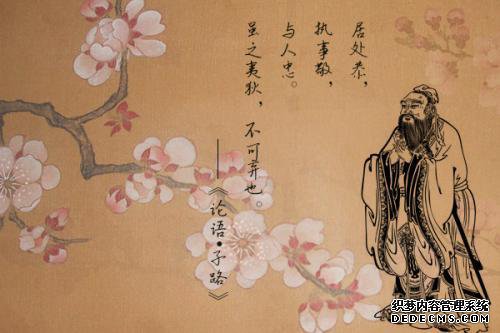 居处恭，
执事敬，
与人忠。
虽之夷狄，不可弃也。
——《论语·子路》
织梦内容管理系统
DEDECMS.COM